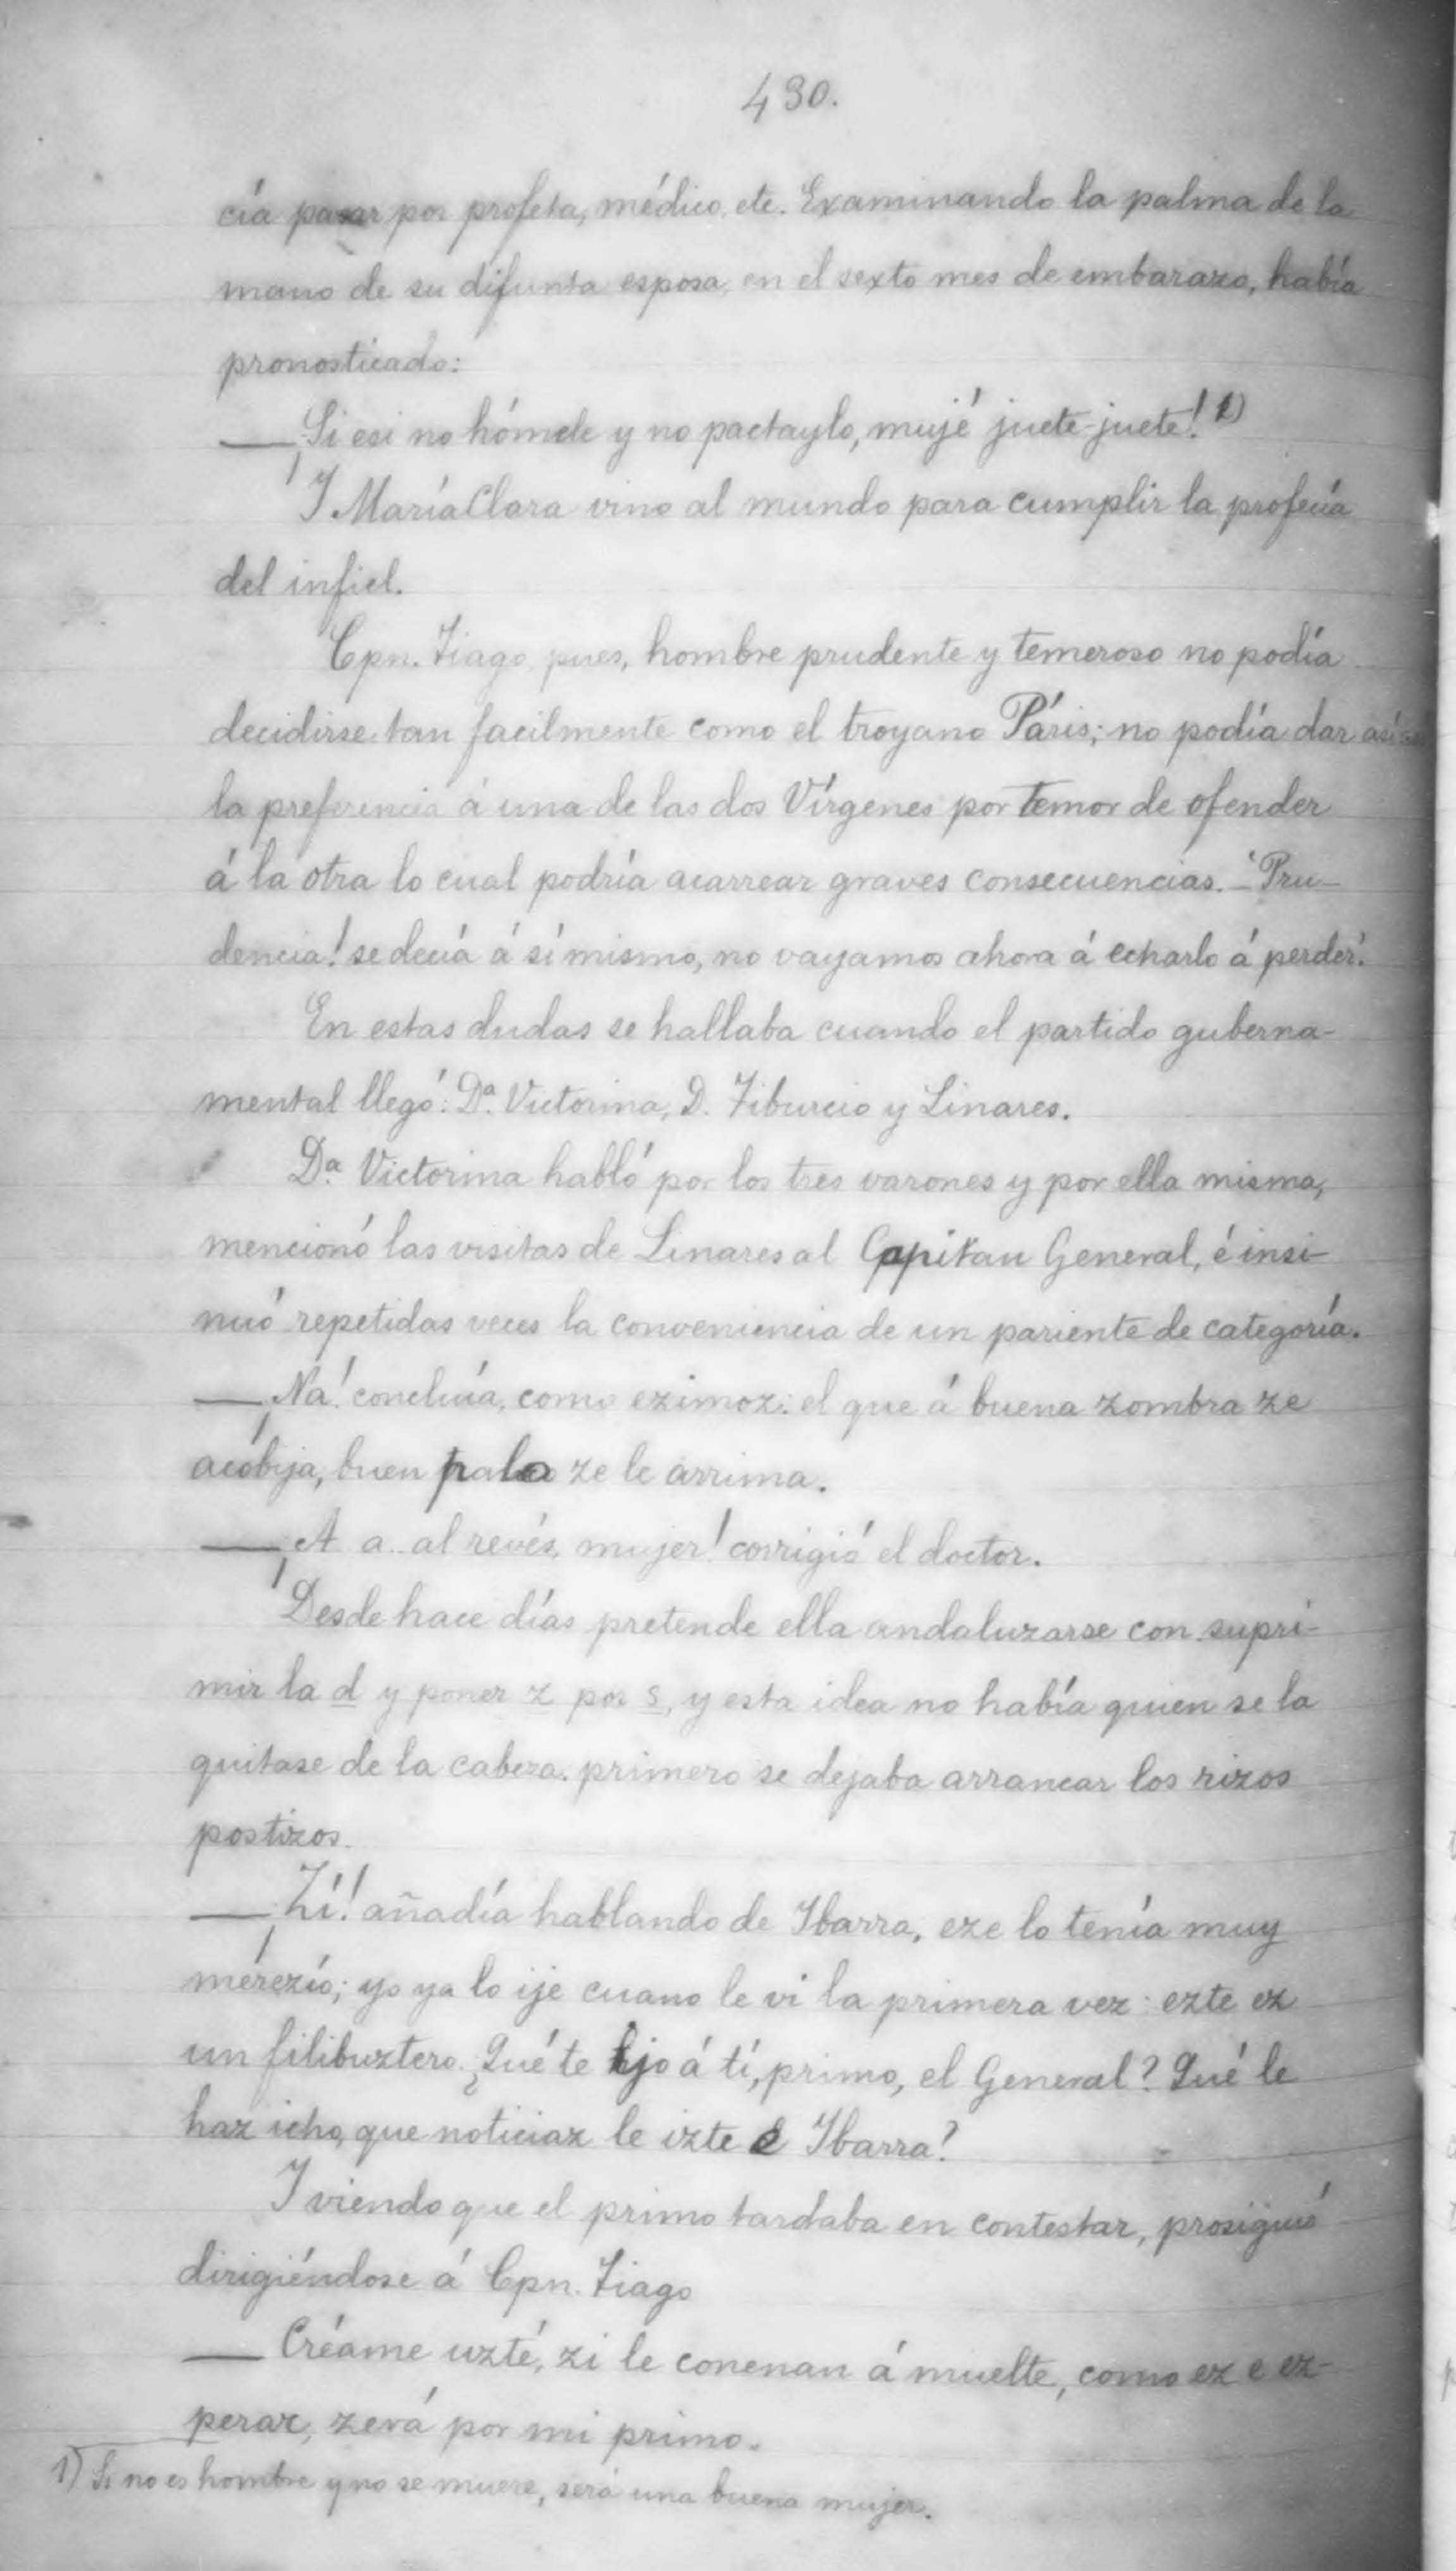 430.
cía pasar por profeta, médico, etc. Examinando la palma de la
mano de su difunta esposa en el sexto mes de embarazo, había
pronosticado:
— ¡Si esi no hómele y no pactaylo, mujé juete-juete! 1)
Y María Clara vino al mundo para cumplir la profecía
del infiel.
Cpn. Tiago, pues, hombre prudente y temeroso no podía
decidirse tan facilmente como el troyano Páris; no podía dar así
la preferencia á una de las dos Vírgenes por temor de ofender
á la otra lo cual podría acarrear graves consecuencias. – ¡Pru-
dencia! se decía á sí mismo, no vayamos ahora á echarlo á perder!
En estas dudas se hallaba cuando el partido guberna-
mental llegó: Dª. Victorina, D. Tiburcio y Linares.
Dª. Victorina habló por los tres varones y por ella misma,
mencionó las visitas de Linares al Capitan General, é insi-
nuó repetidas veces la conveniencia de un pariente de categoría.
— ¡Na! concluía, como ezimoz: el que á buena zombra ze
acobija, buen palo ze le arrima.
— ¡A a.. al revés, mujer! corrigió el doctor.
Desde hace días pretende ella andaluzarse con supri-
mir la d y poner z por s, y esta idea no había quien se la
quitase de la cabeza. primero se dejaba arrancar los rizos
postizos.
— ¡Zí! añadía hablando de Ibarra, eze lo tenía muy
merezío; yo ya lo ije cuano le vi la primera vez: ezte ez
un filibuztero. ¿Qué te ijo á tí, primo, el General? Qué le
haz icho, que noticiaz le izte e Ibarra?
Y viendo que el primo tardaba en contestar, prosiguió
dirigiéndose á Cpn. Tiago
— Créame uzté, zi le conenan á muelte, como ez e ez-
perar, zerá por mi primo.
1) Si no es hombre y no se muere, será una buena mujer.